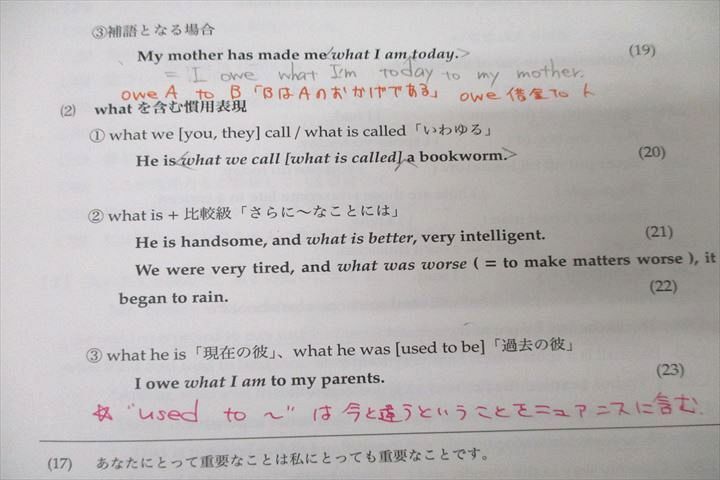 ③補語となる場合
My mother has made me what I am today. (19)
= I owe what I'm today to my mother.
owe A to B「BはAのおかげである」 owe 借金 to 人
(2) what を含む慣用表現
① what we [you, they] call / what is called「いわゆる」
He is what we call [what is called] a bookworm. (20)
② what is + 比較級「さらに～なことには」
He is handsome, and what is better, very intelligent. (21)
We were very tired, and what was worse ( = to make matters worse ), it
began to rain. (22)
③ what he is「現在の彼」、what he was [used to be]「過去の彼」
I owe what I am to my parents. (23)
☆ "used to ～" は今と違うということをニュアンスに含む.
(17) あなたにとって重要なことは私にとっても重要なことです。